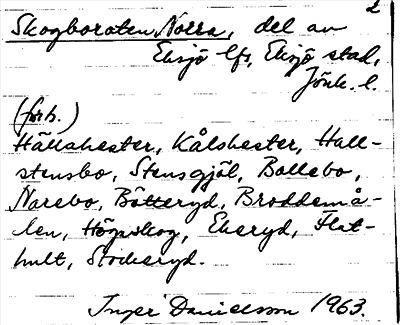 2
Skogboraten Norra, del av
Eksjö lfs, Eksjö stad,
Jönk. l.
(förh.)
Hällshester, Kålshester, Hall-
stensbo, Stensgjöl, Bollebo,
Narebo, Bötteryd, Broddemå-
len, Högaskog, Ekeryd, Flat-
hult, Stockeryd.
Inger Danielsson 1963.